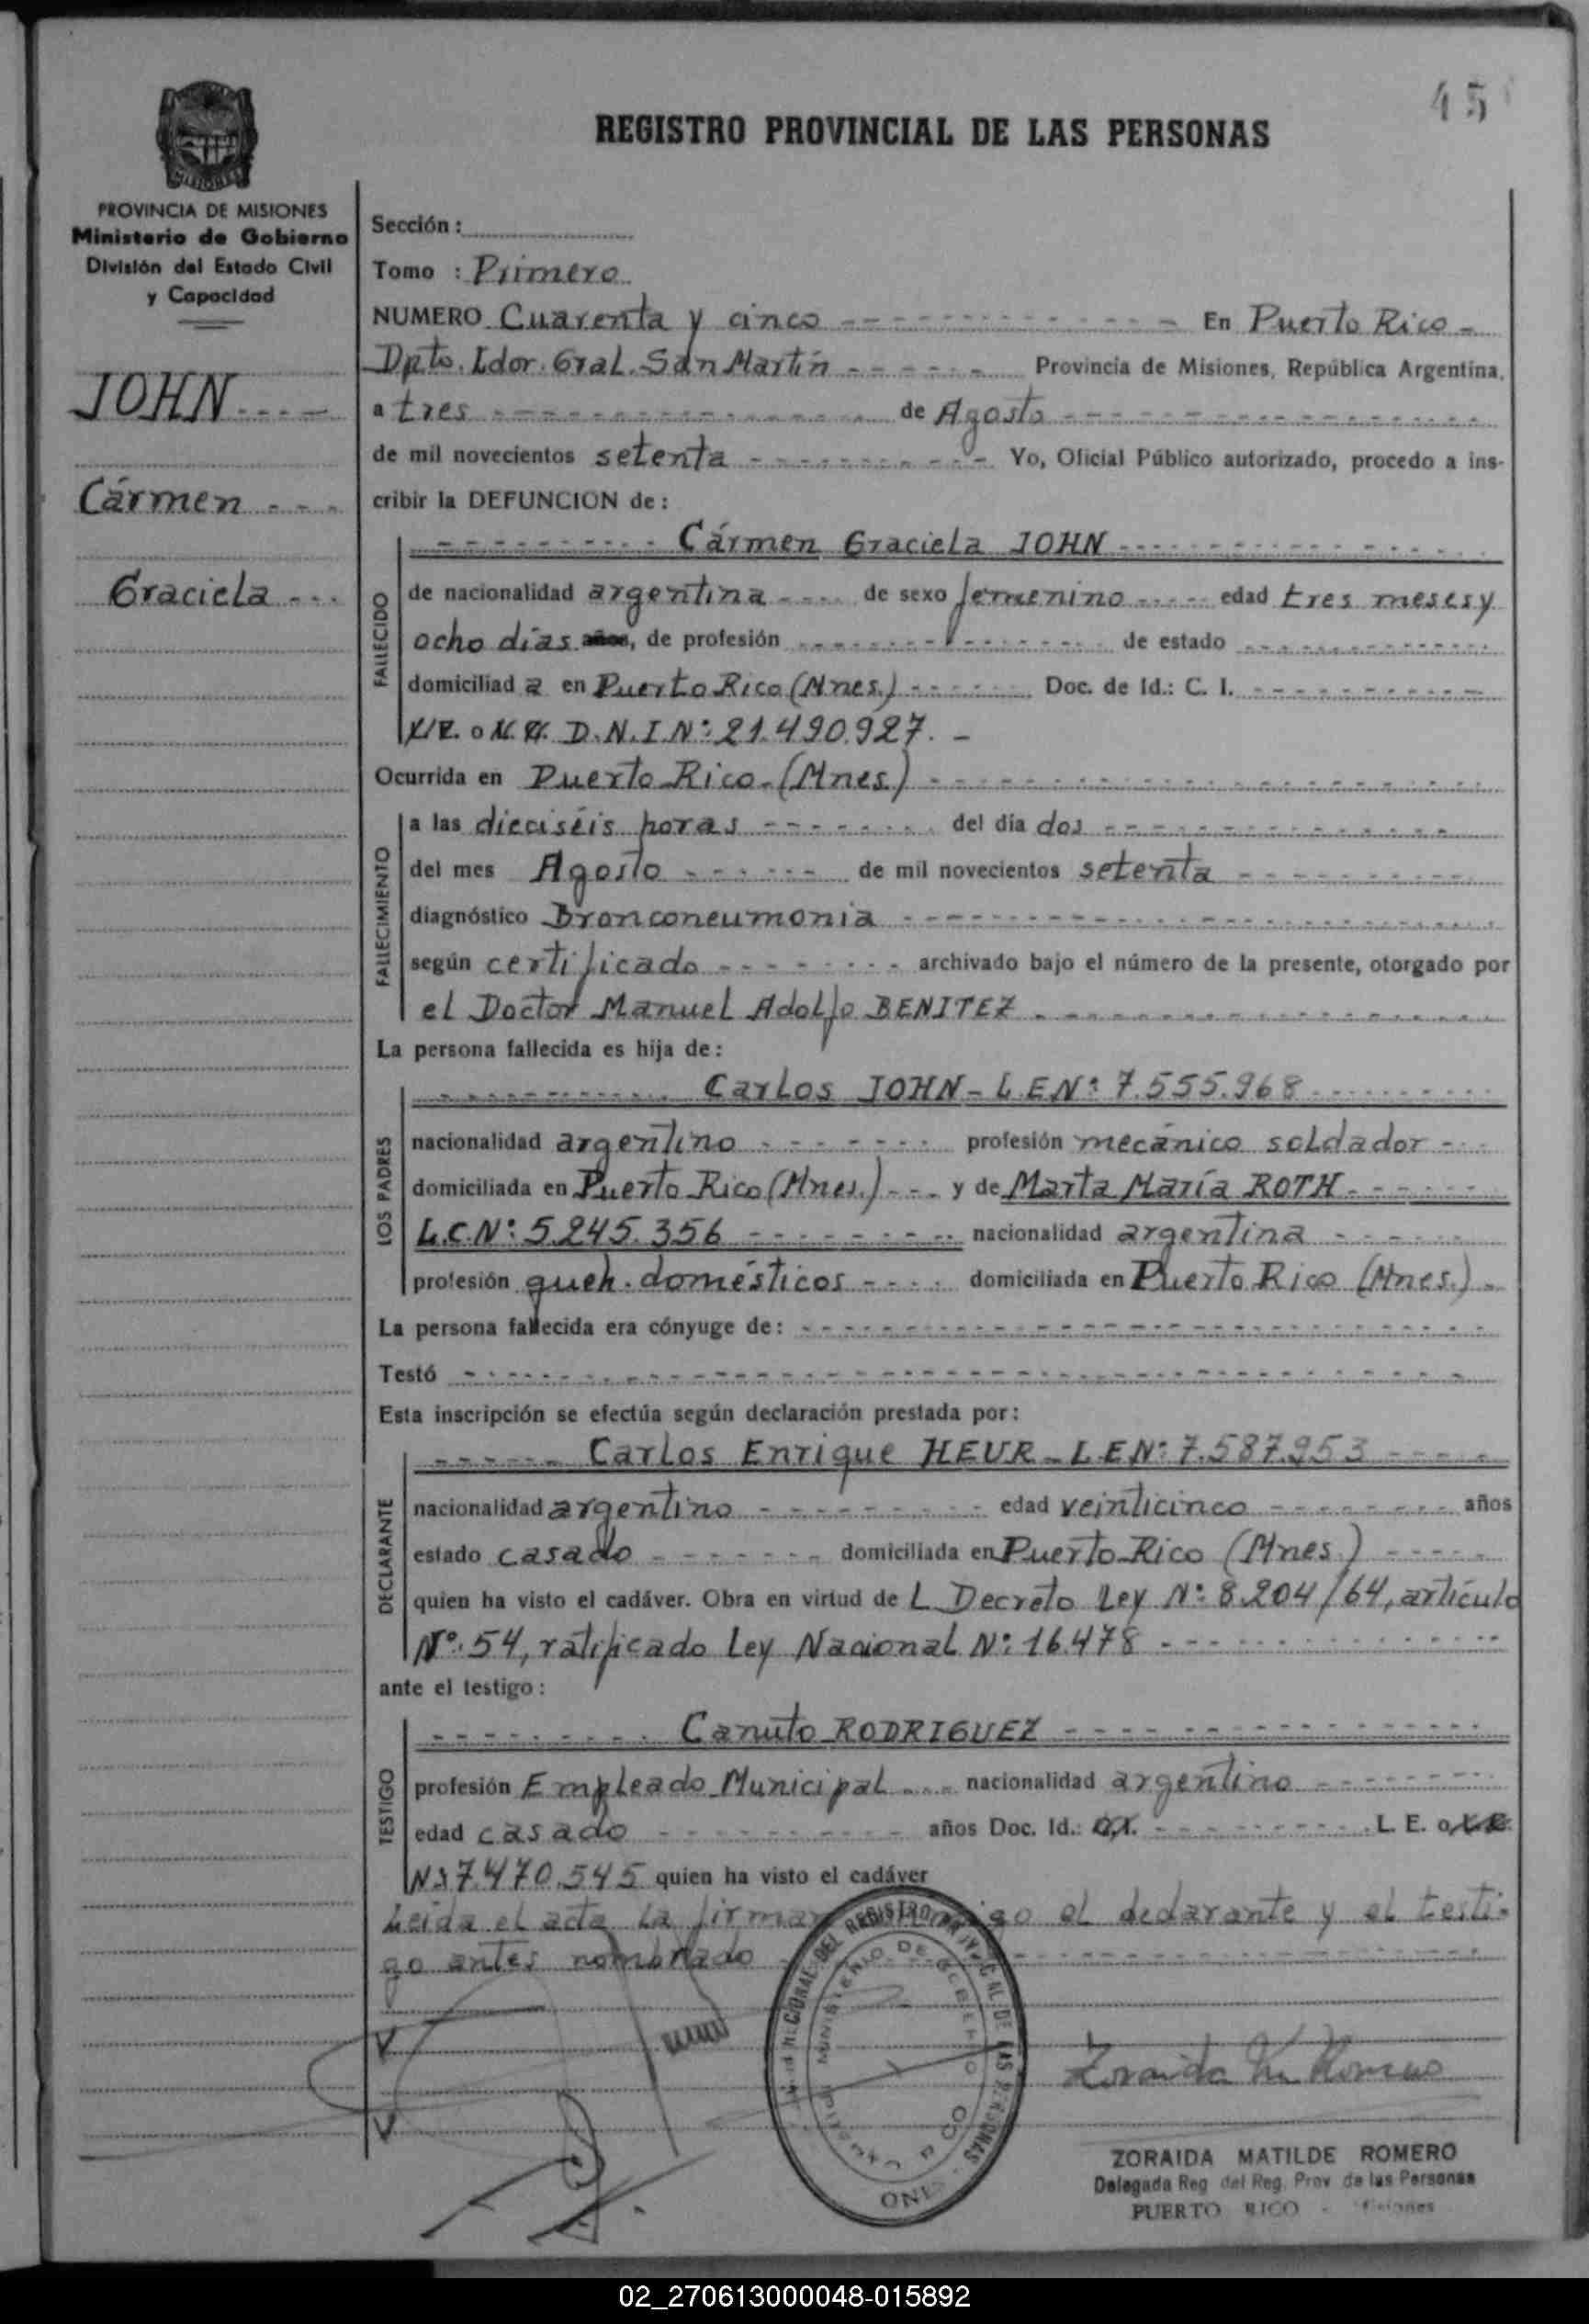 45
REGISTRO PROVINCIAL DE LAS PERSONAS
MISIONES
PROVINCIA DE MISIONES
Ministerio de Gobierno
División del Estado Civil
y Capacidad
JOHN
Cármen
Graciela
Sección:
Tomo : Primero
NUMERO Cuarenta y cinco En Puerto Rico
Dpto. Ldor. Gral. San Martín Provincia de Misiones, República Argentina,
a tres de Agosto
de mil novecientos setenta Yo, Oficial Público autorizado, procedo a ins-
cribir la DEFUNCION de:
Cármen Graciela JOHN
FALLECIDO
de nacionalidad argentina de sexo femenino edad tres meses y
ocho días años, de profesión de estado
domiciliad a en Puerto Rico (Mnes.) Doc. de Id.: C. I.
D.N.I Nº: 21.490.927. -
Ocurrida en Puerto Rico. (Mnes.)
FALLECIMIENTO
a las dieciséis horas del día dos
del mes Agosto de mil novecientos setenta
diagnóstico Bronconeumonia
según certificado archivado bajo el número de la presente, otorgado por
el Doctor Manuel Adolfo BENITEZ
La persona fallecida es hija de:
LOS PADRES
Carlos JOHN - L.E.Nº: 7.555.968
nacionalidad argentino profesión mecánico soldador
domiciliada en Puerto Rico (Mnes.) y de Marta María ROTH
L.C.Nº: 5.245.356 nacionalidad argentina
profesión queh. domésticos domiciliada en Puerto Rico (Mnes.)
La persona fallecida era cónyuge de:
Testó
Esta inscripción se efectúa según declaración prestada por:
DECLARANTE
Carlos Enrique HEUR - L.E.Nº: 7.587.953
nacionalidad argentino edad veinticinco años
estado casado domiciliada en Puerto Rico (Mnes.)
quien ha visto el cadáver. Obra en virtud de L Decreto Ley Nº: 8.204/64, artículo
Nº: 54, ratificado Ley Nacional Nº: 16.478
ante el testigo:
TESTIGO
Canuto RODRIGUEZ
profesión Empleado Municipal nacionalidad argentino
edad casado años Doc. Id.: L. E. o
Nº 7.470.545 quien ha visto el cadáver
Leida el acta la firman el declarante y el testi-
go antes nombrado
Zoraida M. Romero
ZORAIDA MATILDE ROMERO
Delegada Reg del Reg. Prov de las Personas
PUERTO RICO - Misiones
02_270613000048-015892